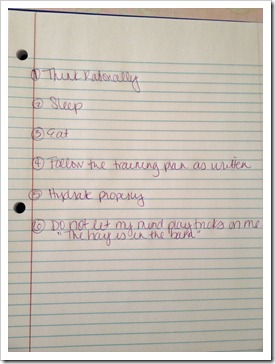 ① Think Rationally
② Sleep
③ Eat
④ Follow the training plan as written
⑤ Hydrate properly
⑥ Do not let my mind play tricks on me
"The hay is in the barn"